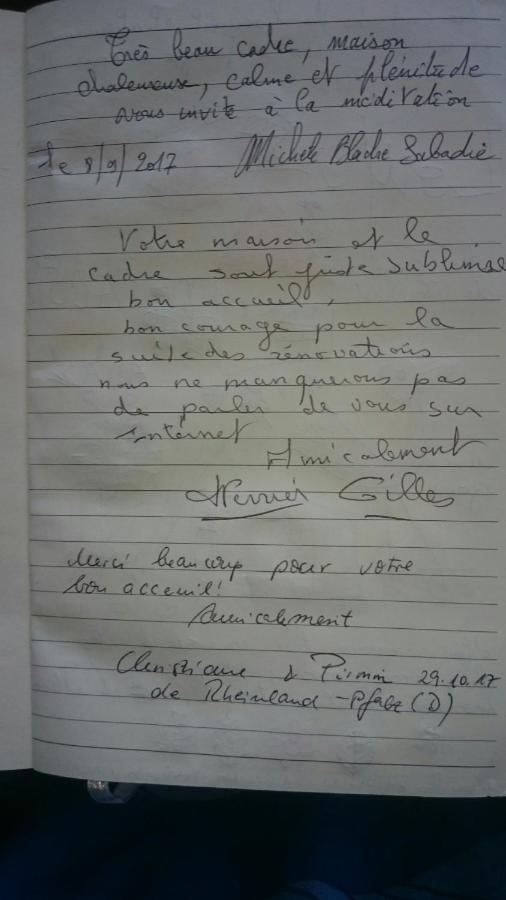 Très beau cadre, maison
chaleureuse, calme et plénitude
vous invite à la méditation
le 8/9/2017 Michele
Votre maison et le
cadre sont juste sublimise
bon accueil,
bon courage pour la
suite des rénovations
nous ne manquerons pas
de parler de vous sur
Internet
Amicalement
Gilles
Merci beaucoup pour votre
bon acceuil!
Amicalement
Christiane & Pirmin 29.10.17
de Rheinland-Pfalz (D)